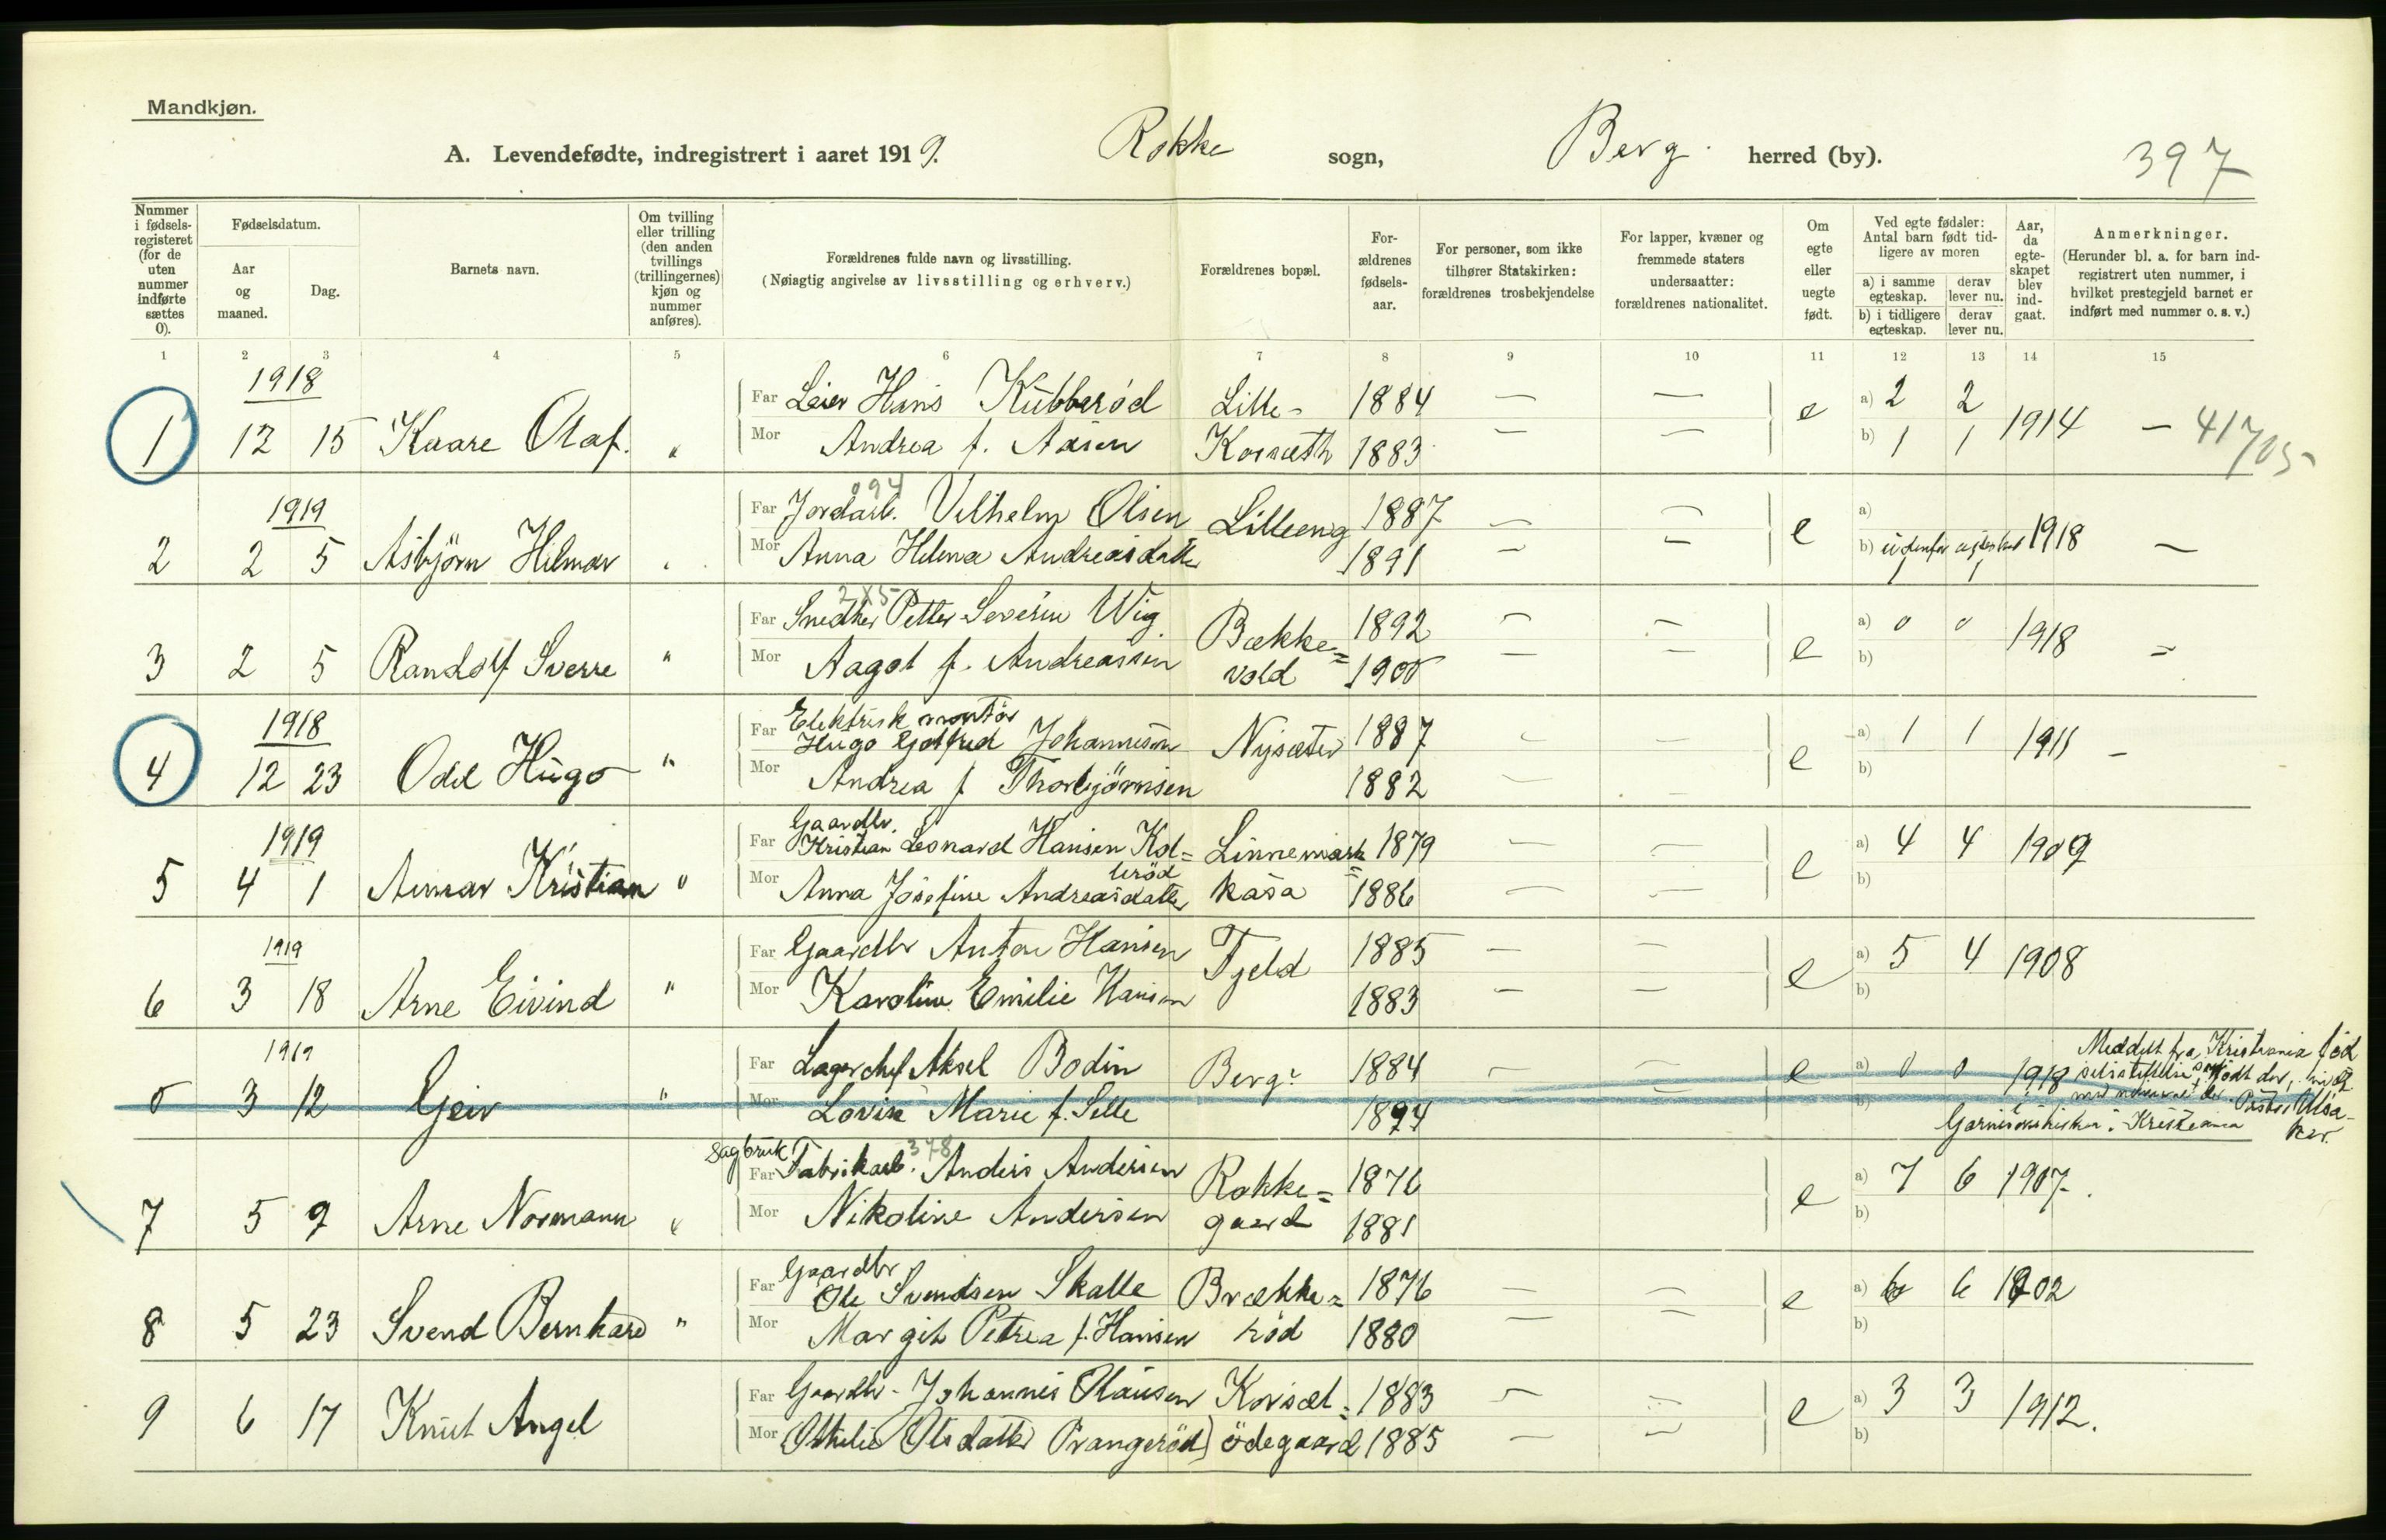 Mandkjøn.
A. Levendefødte, indregistrert i aaret 1919. Rokke sogn, Berg herred (by). 397
Nummer i fødsels-registeret (for de uten nummer indførte sættes 0).
Fødselsdatum.
Aar og maaned.
Dag.
Barnets navn.
Om tvilling eller trilling (den anden tvillings (trillingernes) kjøn og nummer anføres).
Forældrenes fulde navn og livsstilling.
(Nøiagtig angivelse av livsstilling og erhverv.)
Forældrenes bopæl.
For-ældrenes fødsels-aar.
For personer, som ikke tilhører Statskirken: forældrenes trosbekjendelse
For lapper, kvæner og fremmede staters undersaatter: forældrenes nationalitet.
Om egte eller uegte født.
Ved egte fødsler: Antal barn født tid-ligere av moren
a) i samme egteskap.
b) i tidligere egteskap.
derav lever nu.
derav lever nu.
Aar, da egte-skapet blev ind-gaat.
Anmerkninger.
(Herunder bl. a. for barn ind-registrert uten nummer, i hvilket prestegjeld barnet er indført med nummer o. s. v.)
1 2 3 4 5 6 7 8 9 10 11 12 13 14 15
1918
Far Leier Hans Kubberød Lille- 1884 — — e a) 2 2
1 12 15 Kaare Olaf. " Mor Andrea f. Aasen Korsæth 1883 — — b) 1 1 1914 — 41705
1919
094
Far Jordarb. Vilhelm Olsen Lilleeng 1887 — — e a)
2 2 5 Asbjörn Hilmar " Mor Anna Helena Andreasdatter 1891 — — b) udenfor egteskab 1918 —
1 1
285
Far Snedker Petter Severin Wig Bække= 1892 — — a) 0 0
3 2 5 Randolf Sverre " Mor Aagot f. Andreassen vold 1900 — — e b) 1918 =
1918
Far Elektrisk montör
Hugo Gotfred Johannesson Nysæter 1887 — — a) 1 1 1911 —
4 12 23 Odd Hugo " Mor Andrea f Thorbjörnsen 1882 — — e b)
1919
Gaardbr.
Far Kristian Leonard Hansen Kol= Linnemark= 1879 — — a) 4 4 1909
leröd
5 4 1 Kristian " Mor Anna Josefine Andreasdatter kasa 1886 — — e b)
1919
Far Gaardbr Anton Hansen Tjeld 1885 — — a) 5 4 1908
6 3 18 Arne Eivind " Mor Karoline Emilie Hansen 1883 — — e b)
1919
Far Lagerchef Aksel Bodin Berg. 1884 — — e a) 0 0 1918 Meddelt fra Kristiania født
0 3 12 Geir " Mor Lovise Marie f. Selle 1894 b)
Garnisonskirken i Kristiania
Sagbruk 378
Far Fabrikarb. Anders Andersen Rokke= 1876 a) 7 6 1907.
7 5 9 Arne Normann " Mor Nikoline Andersen gaard 1881 e b)
Gaardbr
Far Ole Svendsen Skalle Brække= 1876 — — a) 6 6 1902
8 5 23 Svend Bernhard " Mor Margit Petrea f. Hansen röd 1880 — — e b)
Far Gaardbr- Johannes Olausen Korsæt= 1883 — — a) 3 3 1912.
9 6 17 Knut Angel Mor Othelie Olsdatter Prangeröd) ödegaard 1885 — — e b)